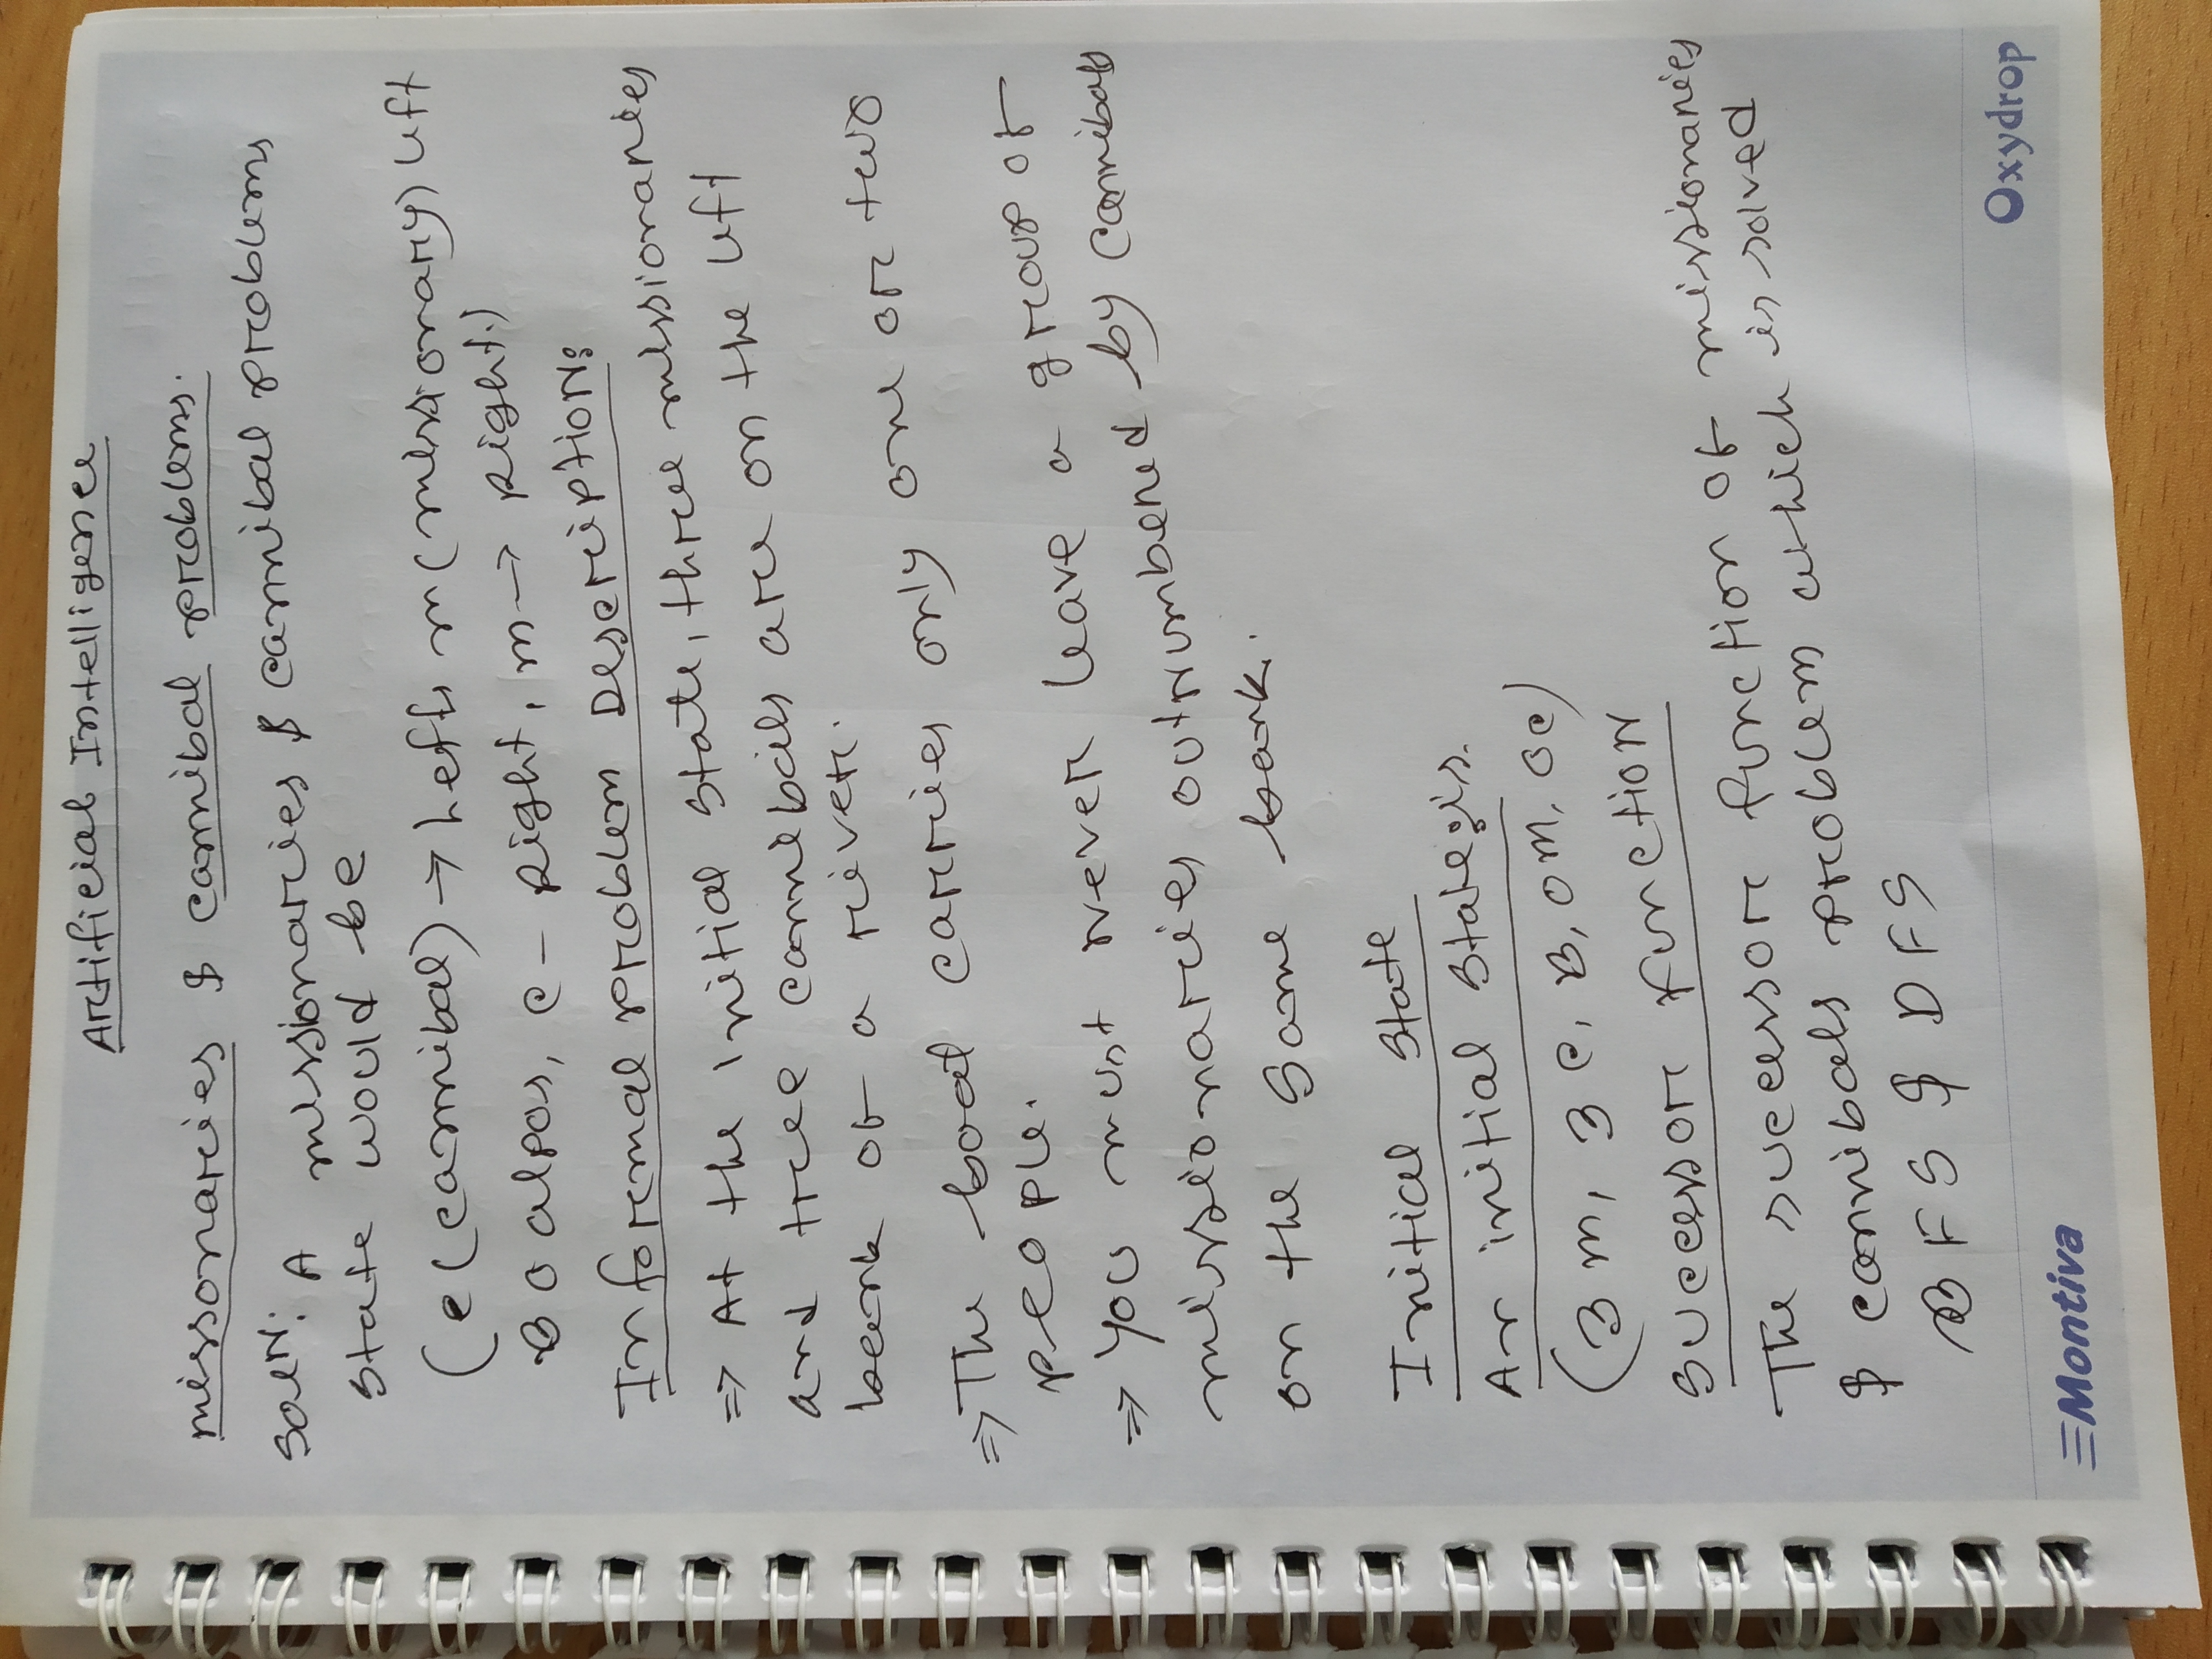 Artificial Intelligence
missonaries & cannibal problems.
Soln: A missionaries & cannibal problems
state would be
(c (cannibal) → left, m (missionary) left
B o alpos, c - Right, m → Right.)
Informal problem Description:
⇒ At the initial state, three missionaries
and tree cannebails are on the left
beank of a river.
⇒ The boat carries only one or two
people.
⇒ you must never leave a group of
missionaries outnumbered by cannibals
on the same bank.
Initial State
An initial state is.
(3m, 3c, B, 0m, 0c)
Successor function
The successor function of missionaries
& cannibals problem which is solved
BFS & DFS
Montiva
Oxydrop